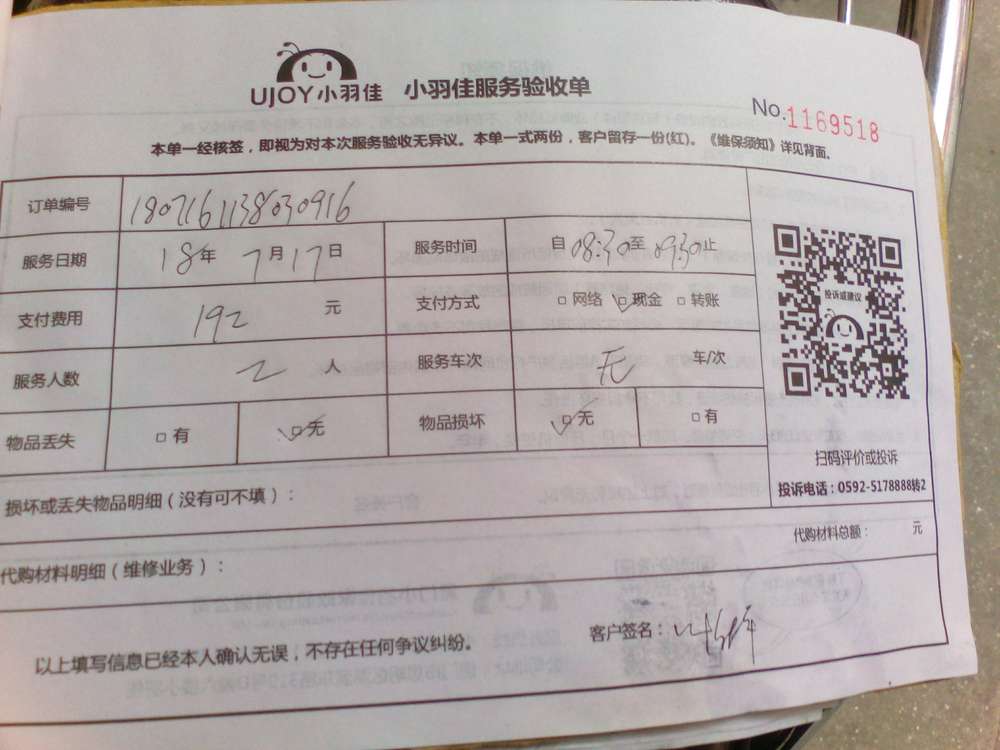 UJOY小羽佳 小羽佳服务验收单
No.1169518
本单一经核签，即视为对本次服务验收无异议。本单一式两份，客户留存一份(红)。《维保须知》详见背面。
订单编号 1807161138030916
服务日期 18年 7月17日 服务时间 自08:30至09:30止
支付费用 192 元 支付方式 □网络 ☑现金 □转账
投诉或建议
服务人数 2 人 服务车次 无 车/次
物品丢失 □有 ☑无 物品损坏 ☑无 □有
扫码评价或投诉
损坏或丢失物品明细（没有可不填）：
投诉电话：0592-5178888转2
代购材料总额： 元
代购材料明细（维修业务）：
客户签名：
以上填写信息已经本人确认无误，不存在任何争议纠纷。